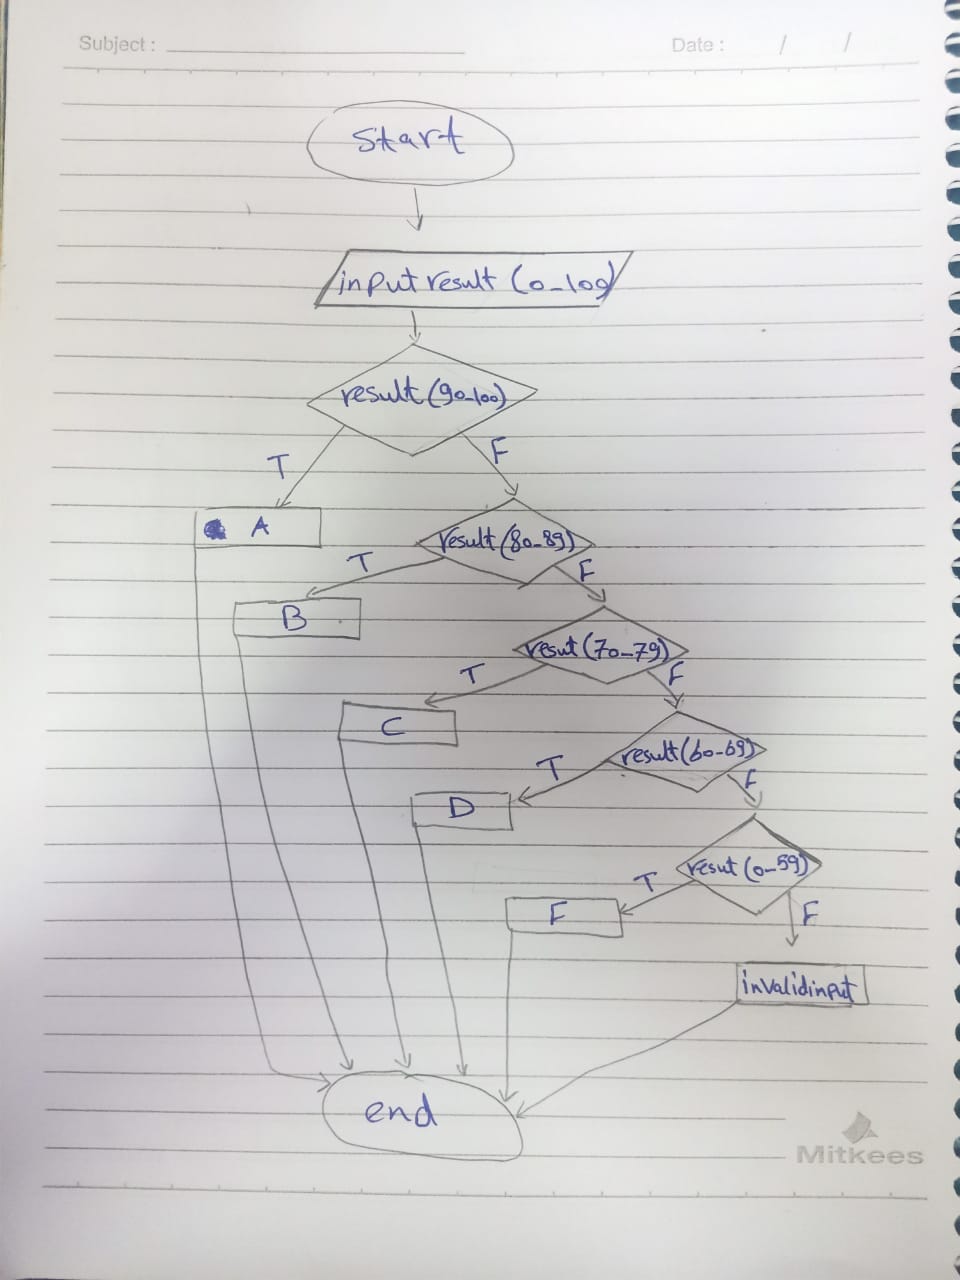 Subject :
Date : / /
start
input result (0-100)
result (90-100)
T
F
A
result (80-89)
T
F
B
resut (70-79)
T
F
C
result (60-69)
T
F
D
resut (0-59)
T
F
F
invalidinput
end
Mitkees